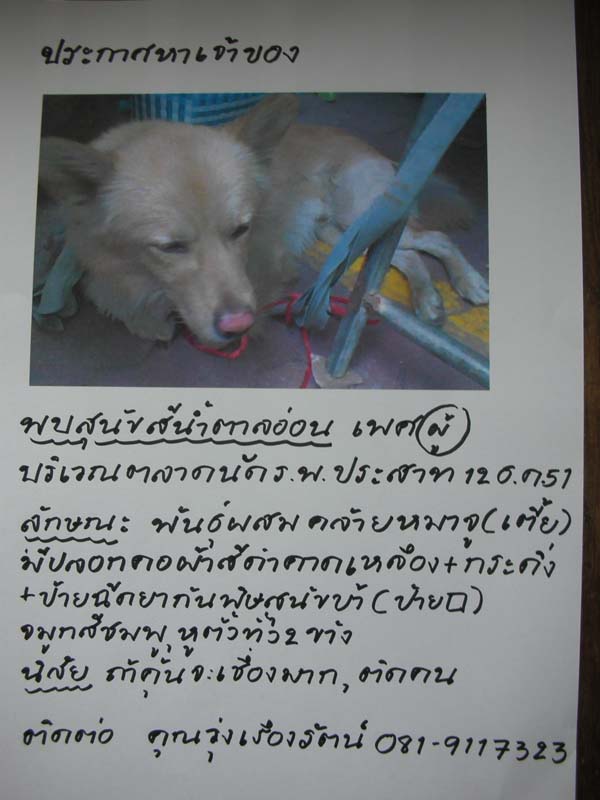 ประกาศหาเจ้าของ
พบสุนัขสีน้ำตาลอ่อน เพศ ผู้
บริเวณตลาดนัด ร.พ.ประสาท 12 ธ.ค.51
ลักษณะ พันธุ์ผสม คล้ายหมาจู (เตี้ย)
มีปลอกคอผ้าสีดำคาดเหลือง+กระดิ่ง
+ป้ายฉีดยากันพิษสุนัขบ้า (ป้าย□)
จมูกสีชมพู, หูตั้งทั้ง 2 ข้าง
นิสัย ถ้าคุ้นจะเชื่องมาก, ติดคน
ติดต่อ คุณรุ่งเรืองรัตน์ 081-9117323